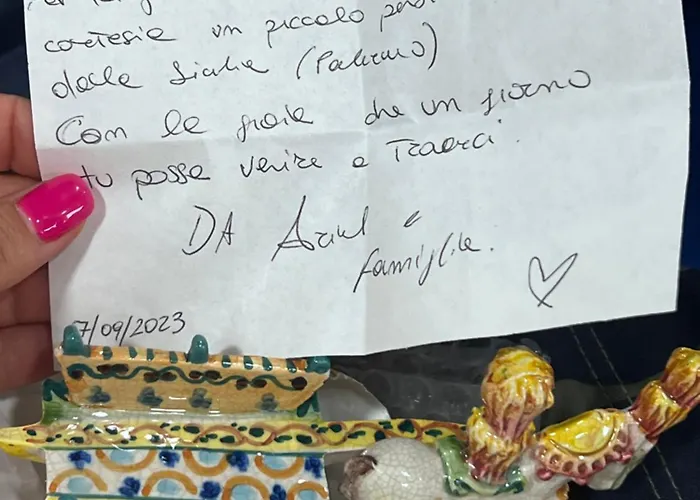 cortesia un piccolo
dalla Sicilia (Palermo)
Con la gioia che un giorno
tu possa venire a Trovarci.
DA e
famiglia.
7/09/2023